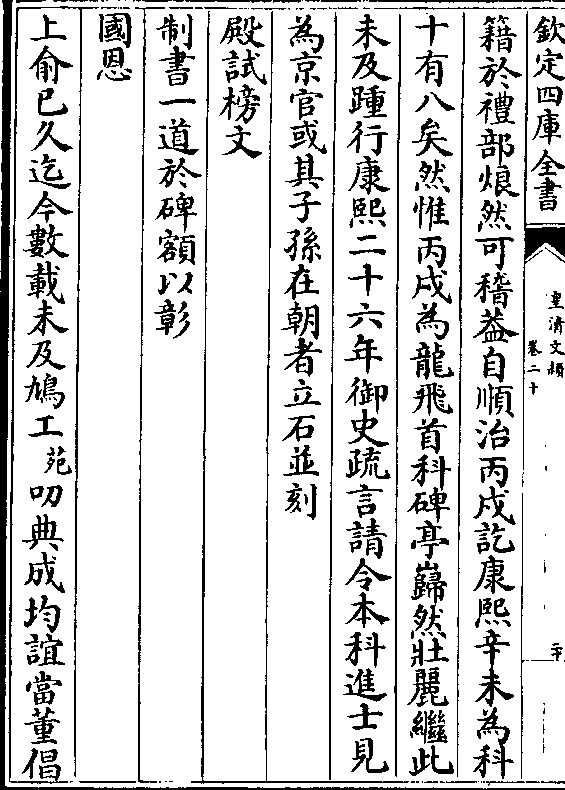 欽定四庫全書
皇清文穎
卷二十
二十
籍於禮部烺然可稽葢自順治丙戌訖康熙辛未為科
十有八矣然惟丙戌為龍飛首科碑亭巋然壯麗繼此
未及踵行康熙二十六年御史疏言請令本科進士見
為京官或其子孫在朝者立石並刻
殿試榜文
制書一道於碑額以彰
國恩
上俞已久迄今數載未及鳩工苑叨典成均誼當董倡